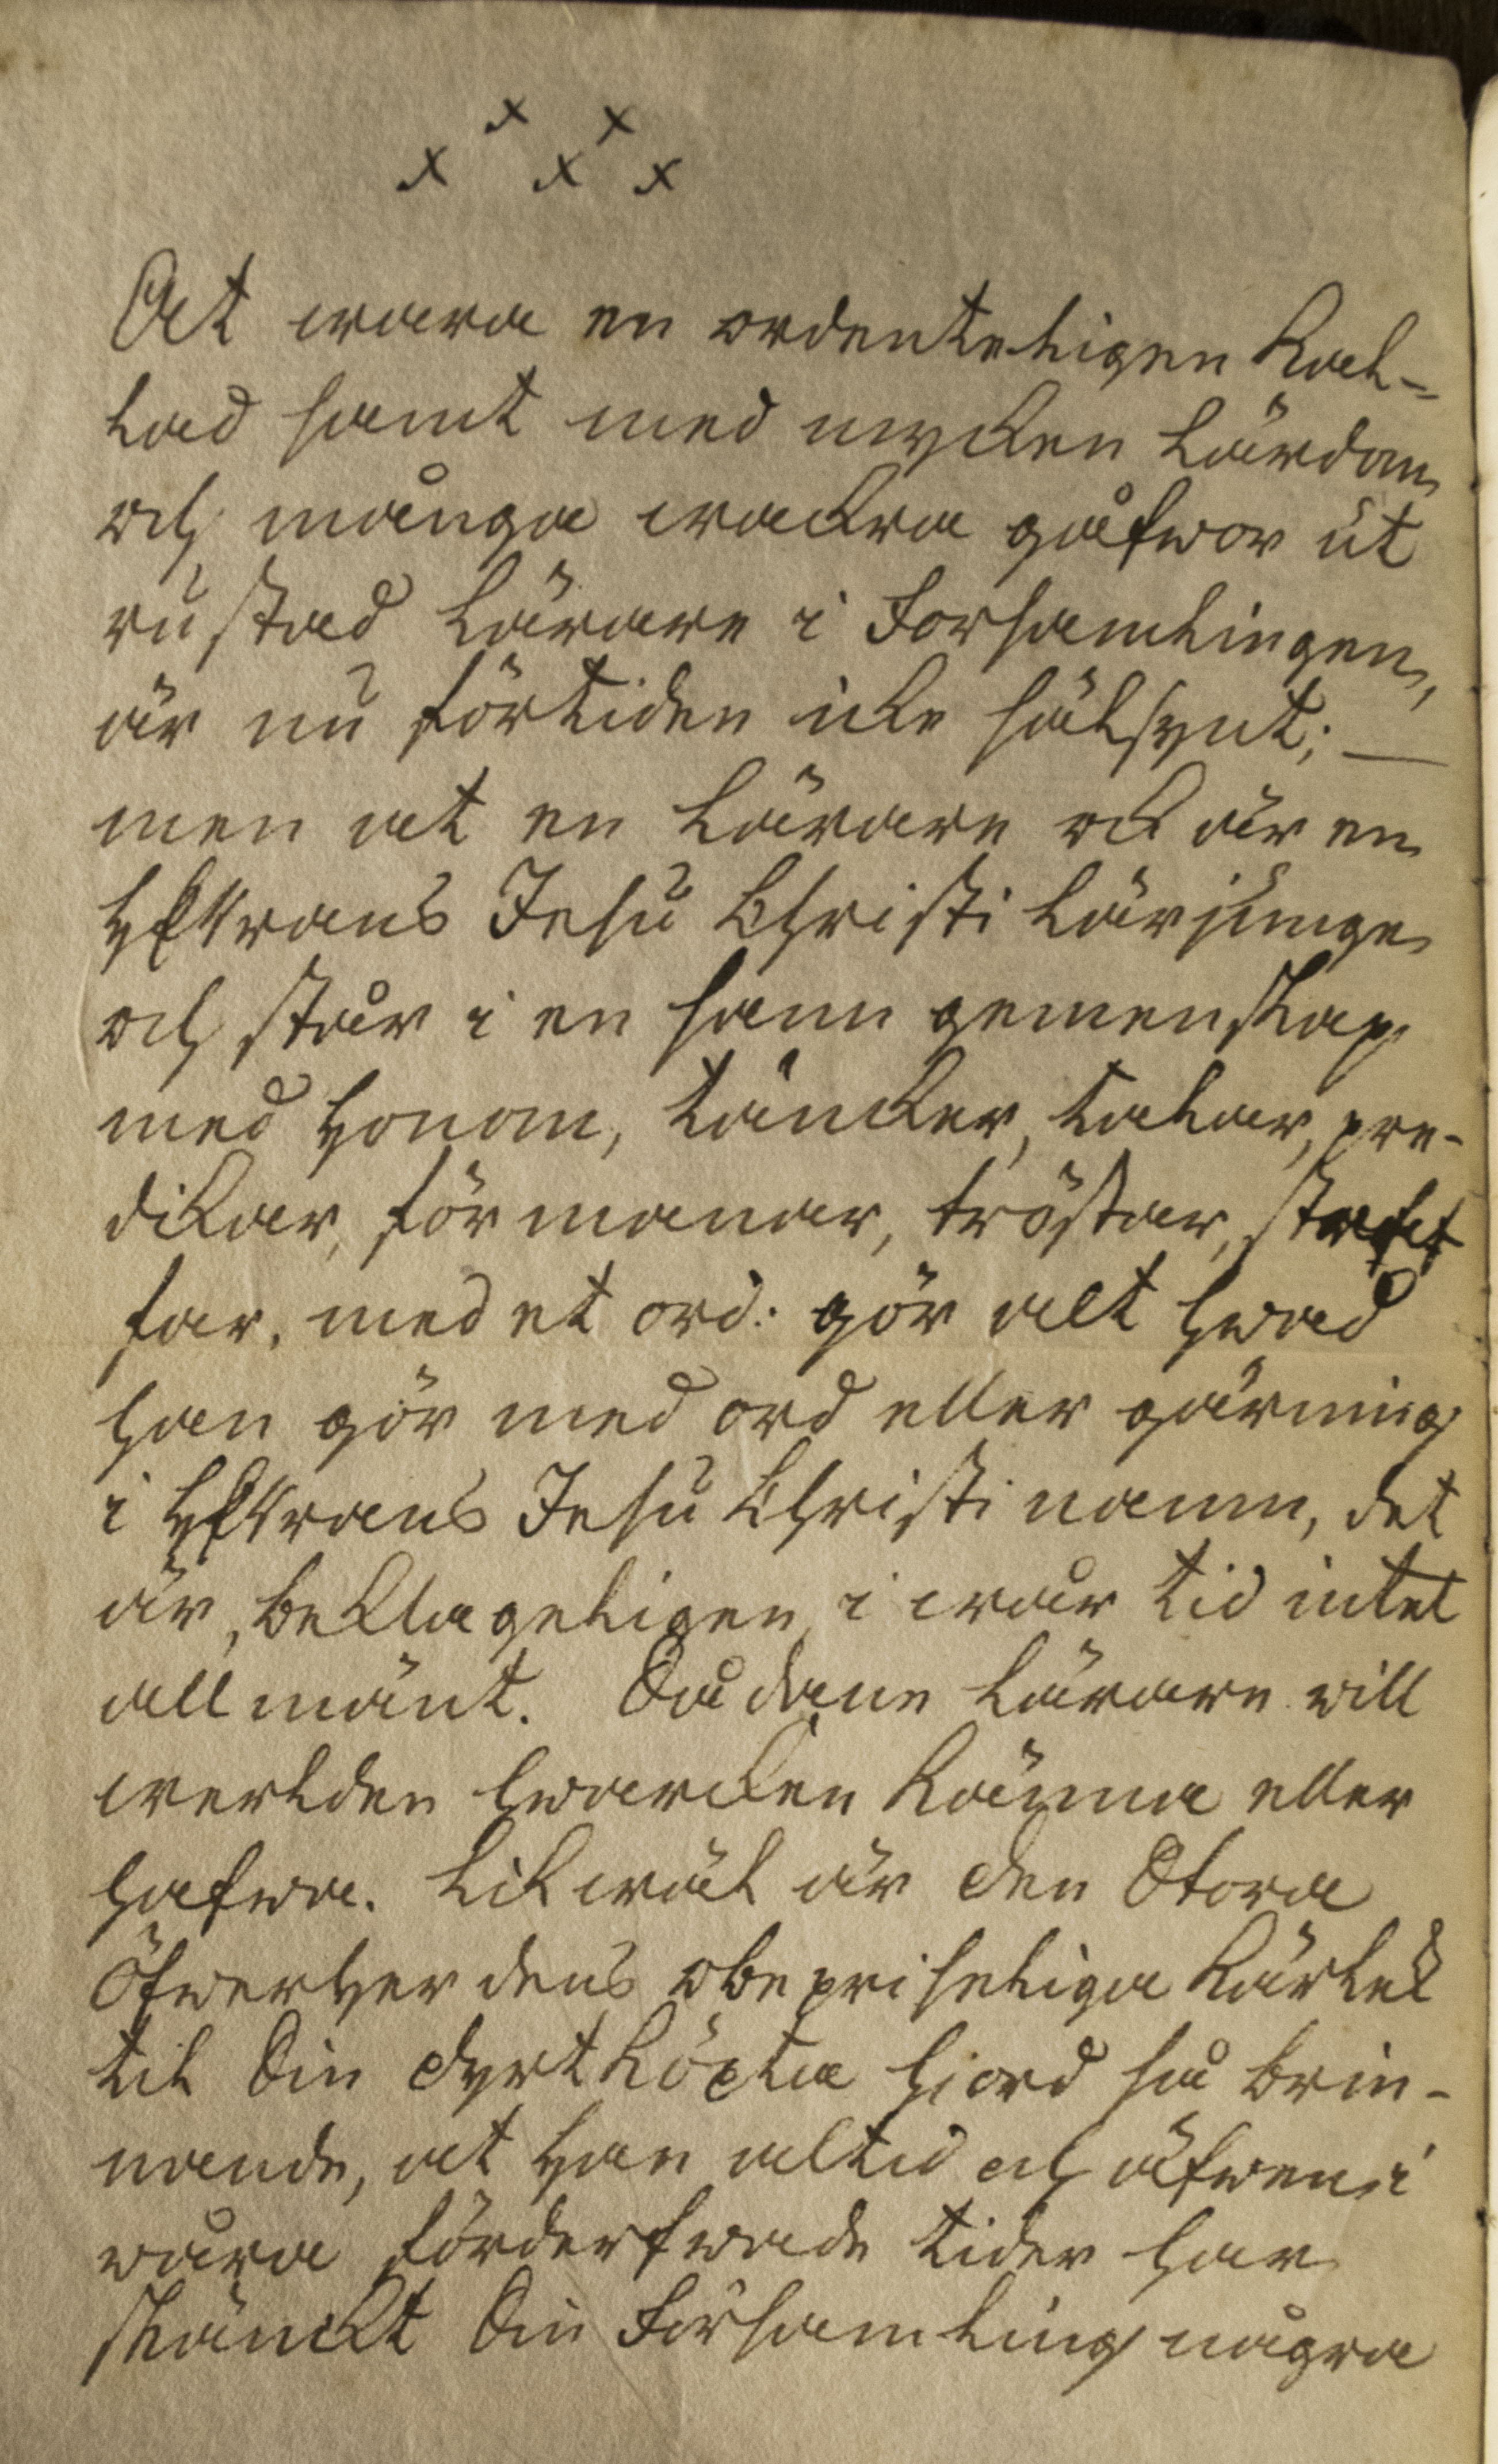 x x
x x x
At wara en ordenteligen kal-
lad samt med mycken lärdom
och många wackra gåfwor ut
rustad Lärare i Forsamlingen,
är nu förtiden icke sälsynt; —
men at en Lärare ock är en
HERrans Jesu Christi Lärjunge
och står i en sann gemenskap
med Honom, täncker, talar, pre-
dikar, förmanar, tröstar, straf
far, med et ord: gör alt hwad
han gör med ord eller gärning
i HERrans Jesu Christi namn, det
är, beklageligen, i wår tid intet
allmänt. Sådane Lärare will
werlden hwarcken känna eller
hafwa. Likwäl är den Stora
Öfwerherdens obepriseliga kärlek
til Sin dyrtköpta hjord så brin-
nande, at Han altid och äfwen i
wåra förderfwade tider har
skänckt Sin Församling några